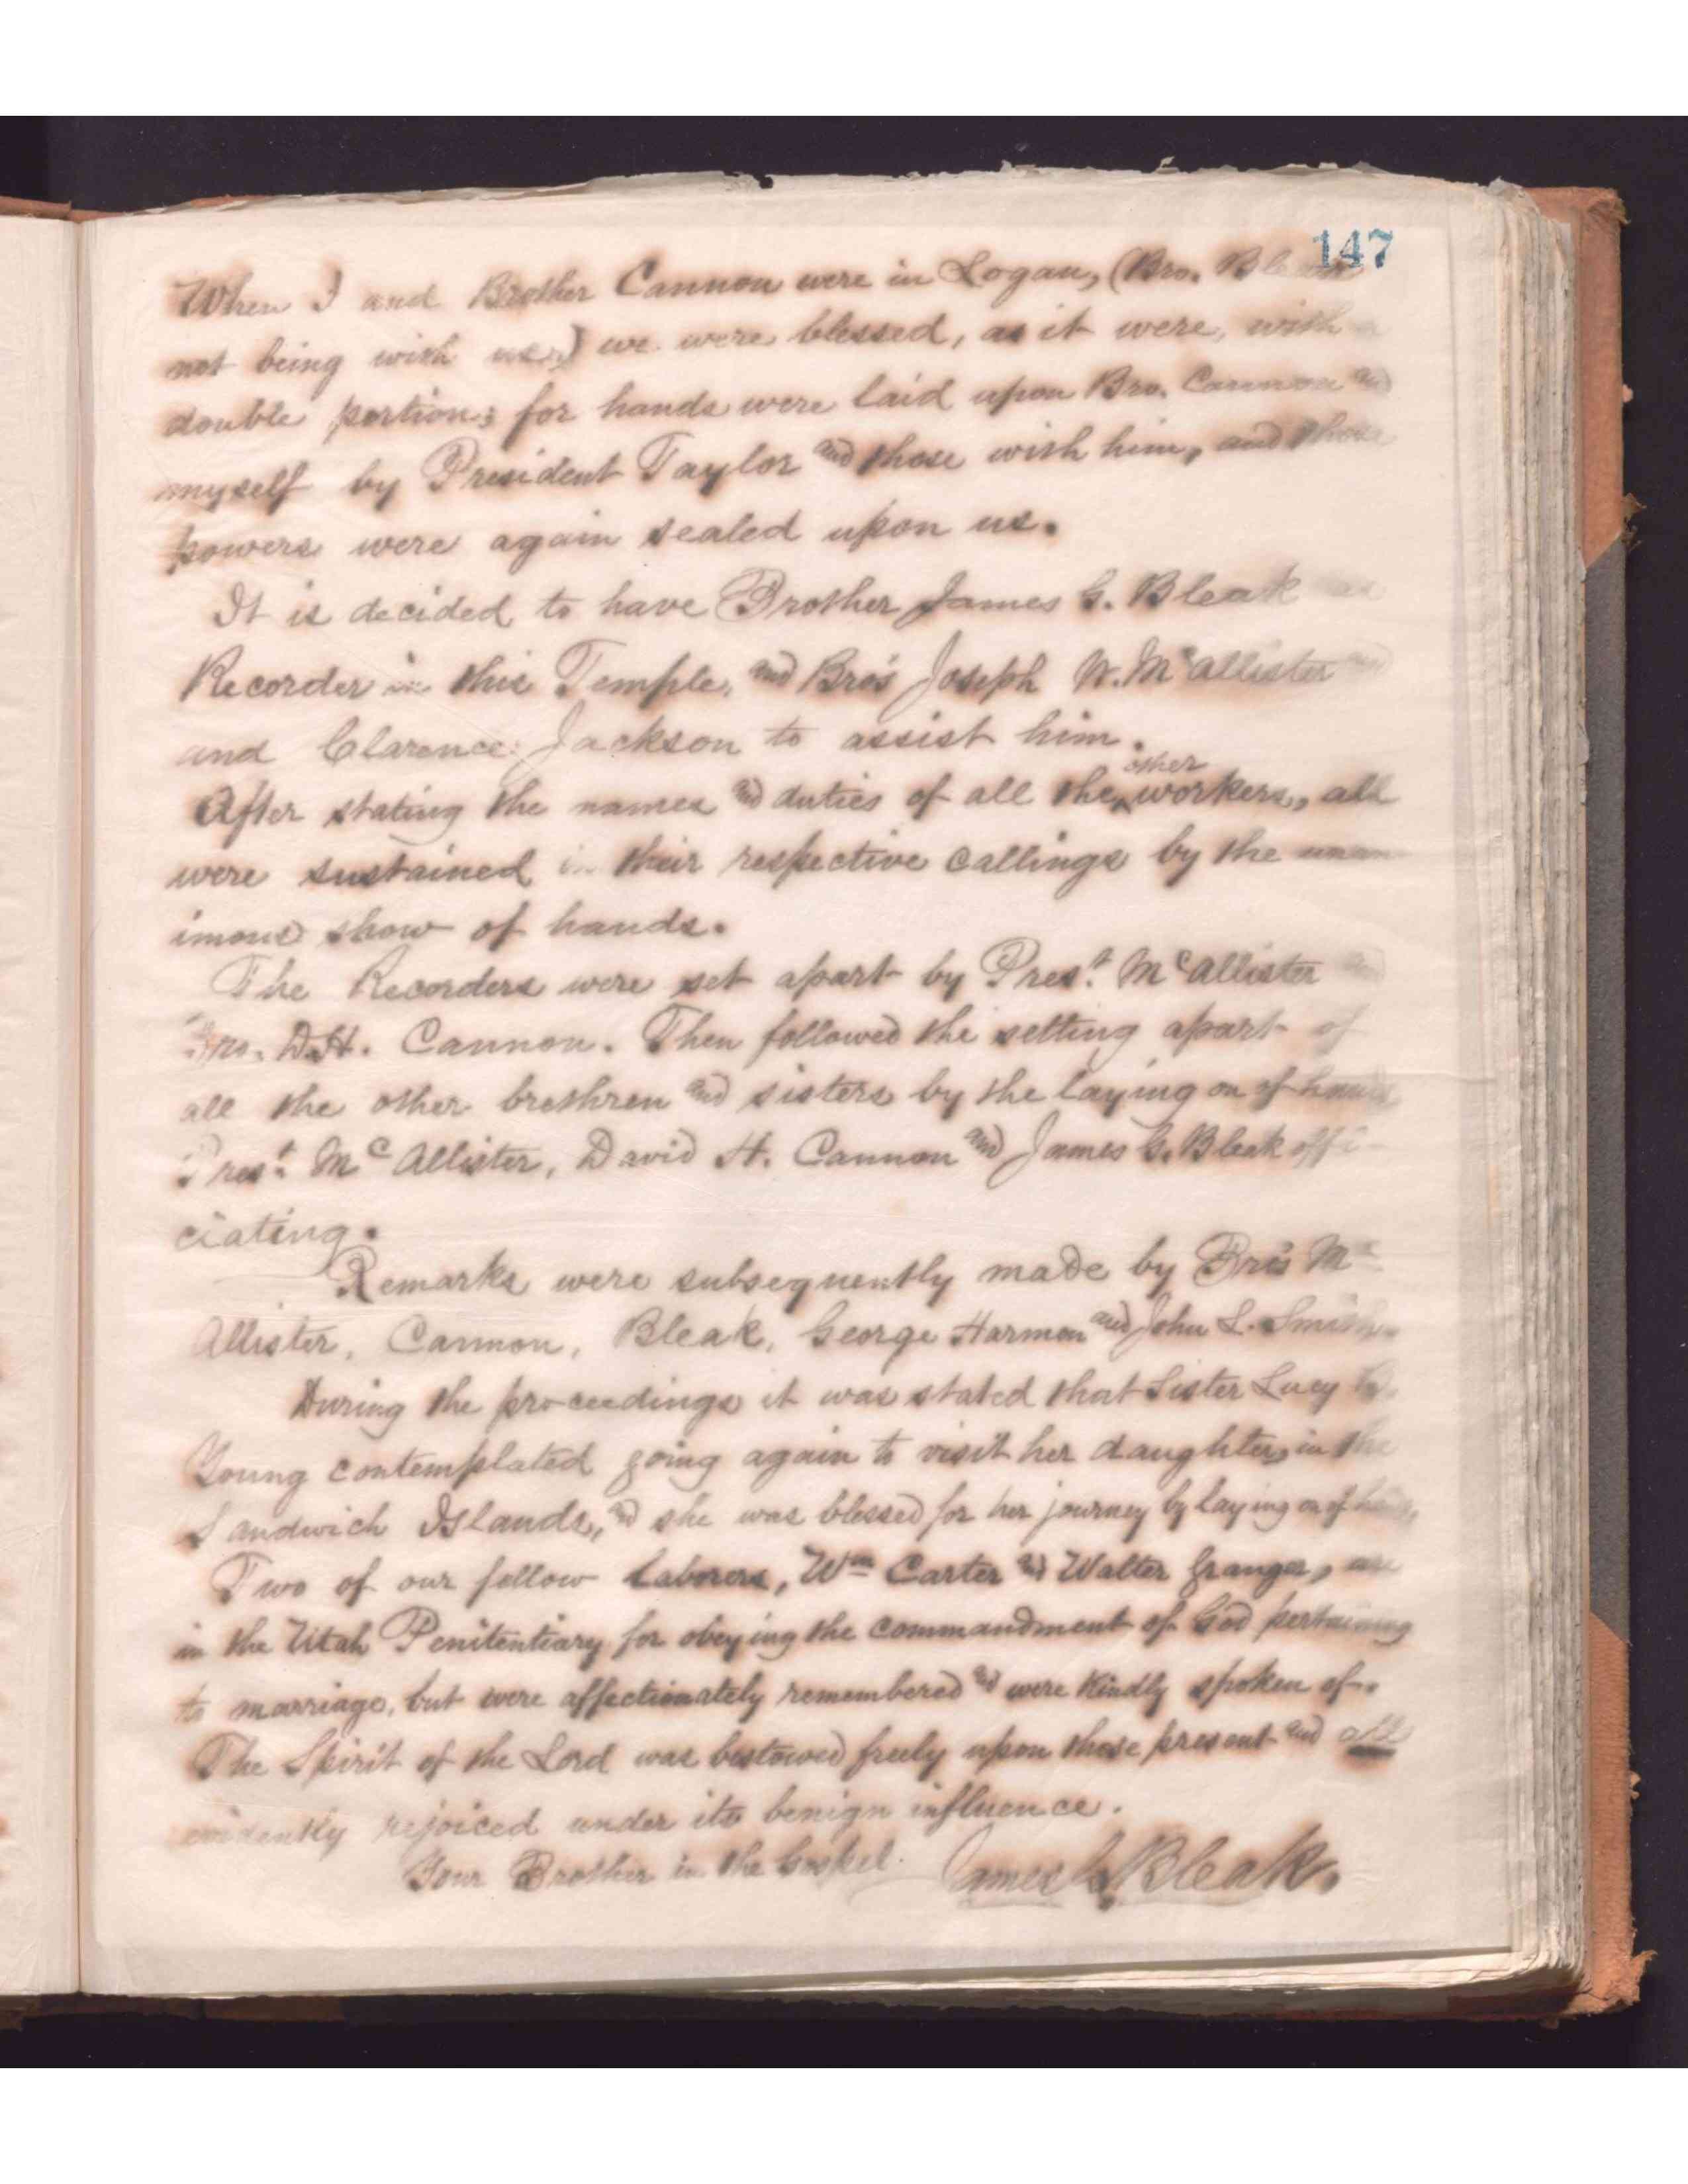 147
When I and Brother Cannon were in Logan, (Bro. Bleak
not being with us,) we were blessed, as it were, with a
double portion; for hands were laid upon Bro. Cannon and
myself by President Taylor and those with him, and those
powers were again sealed upon us.
It is decided to have Brother James G. Bleak as
Recorder in this Temple, and Bro's Joseph W. McAllister
and Clarence Jackson to assist him.
other
After stating the names and duties of all the workers, all
were sustained in their respective callings by the unan
imous show of hands.
The Recorders were set apart by Prest. McAllister
Bro. D.H. Cannon. Then followed the setting apart of
all the other brethren and sisters by the laying on of hands
Prest. McAllister, David H. Cannon and James G. Bleak offi-
ciating.
Remarks were subsequently made by Bro's Mc
Allister, Cannon, Bleak, George Harmon and John L. Smith.
During the proceedings it was stated that Sister Lucy B.
Young contemplated going again to visit her daughter in the
Sandwich Islands, and she was blessed for her journey by laying on of hands,
Two of our fellow laborers, Wm Carter and Walter Granger, are
in the Utah Penitentiary for obeying the commandment of God pertaining
to marriage, but were affectionately remembered and were kindly spoken of.
The Spirit of the Lord was bestowed freely upon those present and all
evidently rejoiced under its benign influence.
Your Brother in the Gospel. James G. Bleak.